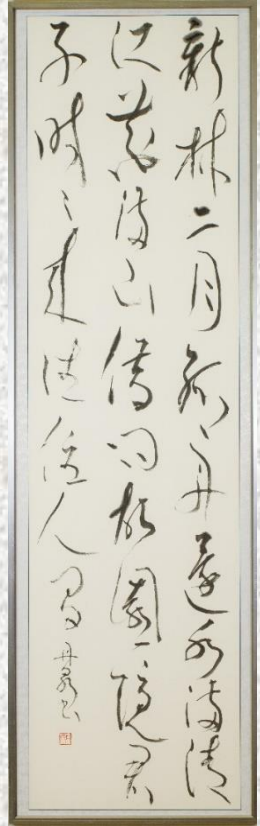 新林二月孤舟還水滿清
江花滿山借問故園隱君
子時々來往住人間